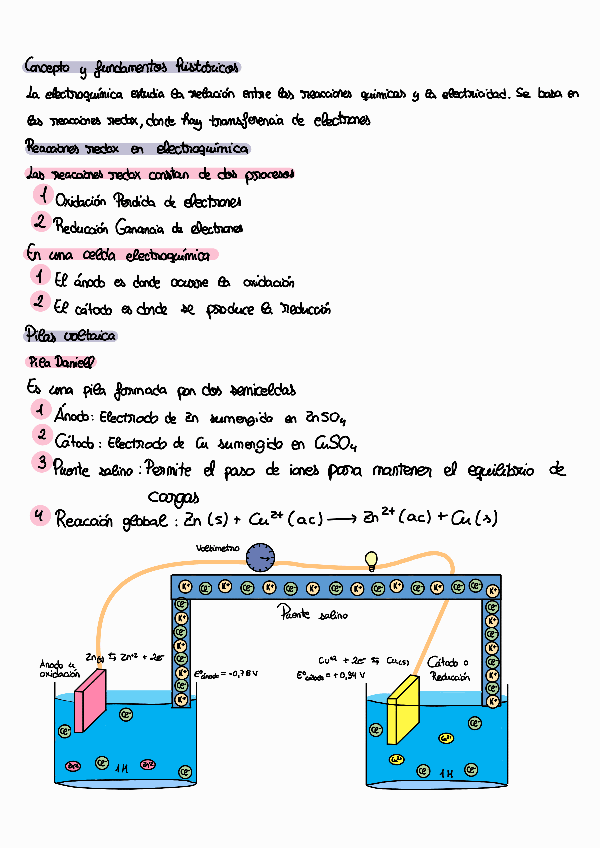 Concepto y fundamentos históricos
La electroquímica estudia la relación entre las reacciones químicas y la electricidad. Se basa en
las reacciones redox, donde hay transferencia de electrones
Reacciones redox en electroquímica
Las reacciones redox constan de dos procesos
1 Oxidación Perdida de electrones
2 Reducción Ganancia de electrones
En una celda electroquímica
1 El ánodo es donde ocurre la oxidación
2 El cátodo es donde se produce la reducción
Pilas voltaica
Pila Daniell
Es una pila formada por dos semiceldas
1 Ánodo: Electrodo de Zn sumergido en ZnSO4
2 Cátodo: Electrodo de Cu sumergido en CuSO4
3 Puente salino: Permite el paso de iones para mantener el equilibrio de
cargas
4 Reacción global: Zn (s) + Cu²⁺ (ac) → Zn²⁺ (ac) + Cu (s)
Voltímetro
K+ Cl- K+ Cl- K+ Cl- K+ Cl- K+ Cl- K+ Cl- K+ Cl- Cl- K+
Puente salino
Cl- K+ Cl- K+ Cl- K+ Cl- K+
Cl- K+ Cl- K+ Cl- K+ Cl- K+
Ánodo u oxidación
Zn(s) ⇆ Zn⁺² + 2e⁻
E°ánodo = -0,76 V
Cu⁺² + 2e⁻ ⇆ Cu(s)
E°cátodo = +0,34 V
Cátodo o Reducción
Cl- Cl- Zn+2 1 M Zn+2 Cl-
Cl- Cu+2 Cu+2 Cl- 1 M Cl-